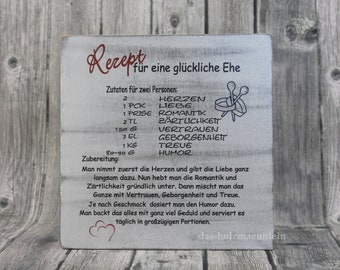 Rezept
für eine glückliche Ehe
Zutaten für zwei Personen:
2 HERZEN
1 PCK LIEBE
1 PRISE ROMANTIK
2 TL ZÄRTLICHKEIT
VERTRAUEN
3 EL GEBORGENHEIT
1 KG TREUE
HUMOR
Zubereitung:
Man nimmt zuerst die Herzen und gibt die Liebe ganz
langsam dazu. Nun hebt man die Romantik und
Zärtlichkeit gründlich unter. Dann mischt man das
Ganze mit Vertrauen, Geborgenheit und Treue.
Je nach Geschmack dosiert man den Humor dazu.
Man backt das alles mit ganz viel Geduld und serviert es
täglich in großzügigen Portionen.